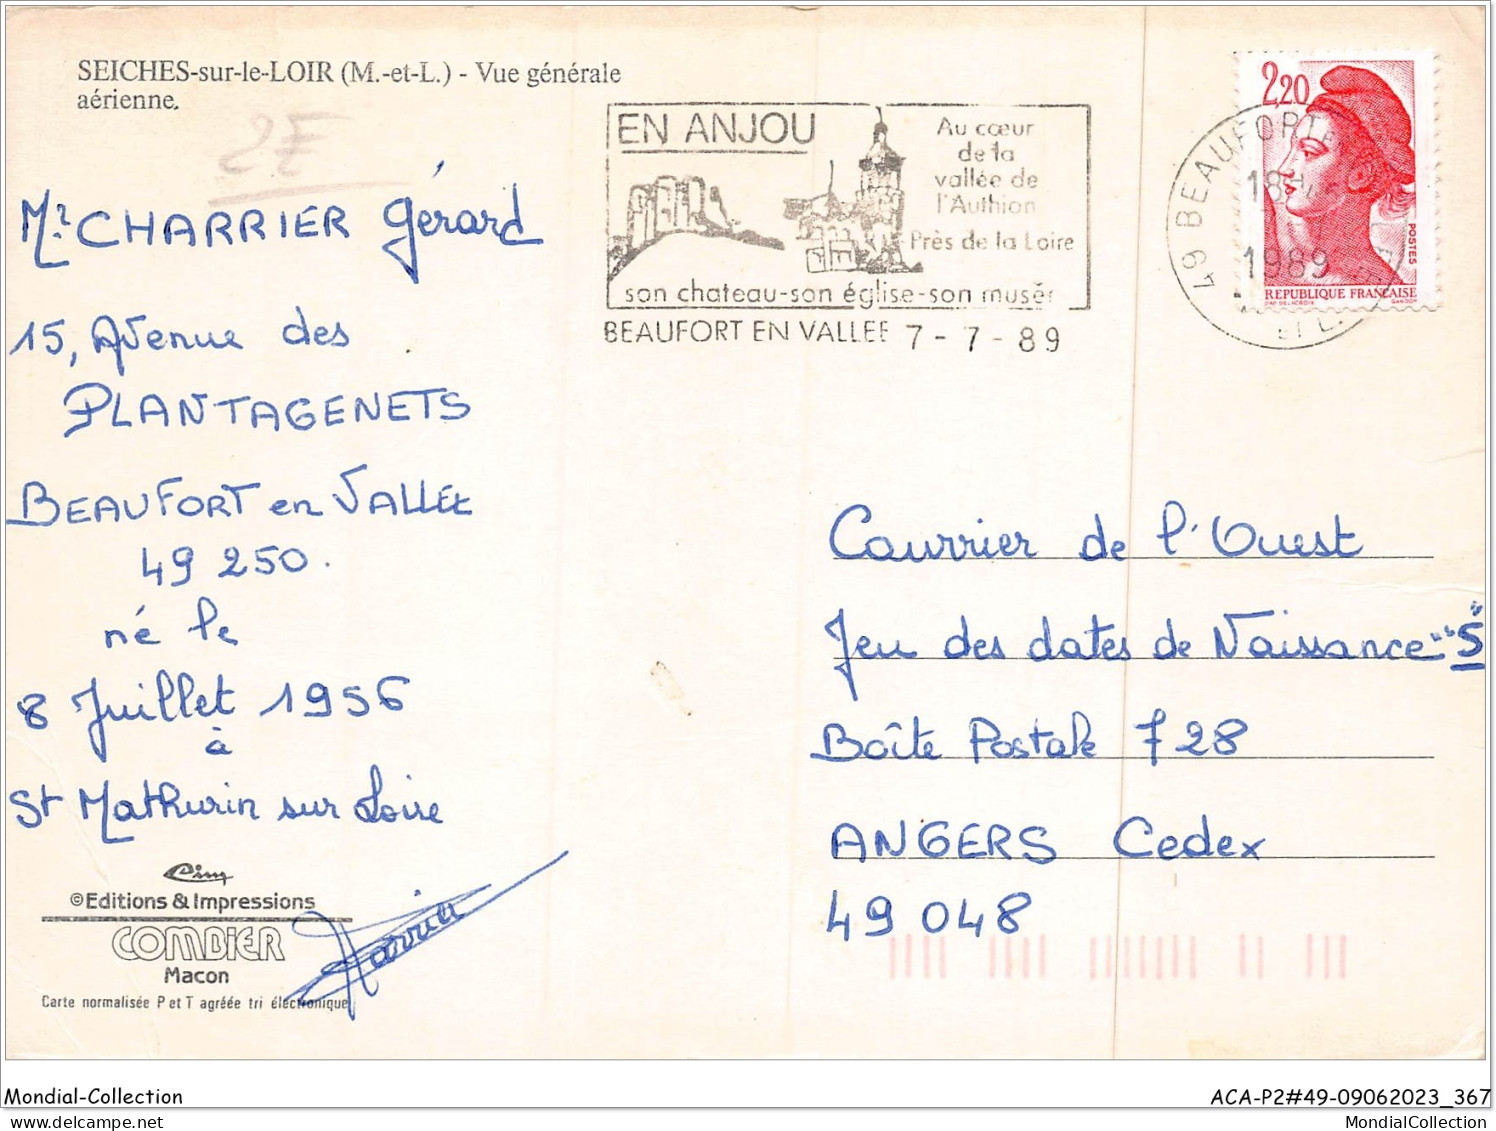 SEICHES-sur-le-LOIR (M.-et-L.) - Vue générale
aérienne.
2€
EN ANJOU
Au cœur
de la
vallée de
l'Authion
Près de la Loire
son chateau-son église-son musée
BEAUFORT EN VALLEE 7 - 7 - 89
49 BEAUFORT
18H
1989
2,20
POSTES
REPUBLIQUE FRANÇAISE
D'AP. DELACROIX
GANDON
Mr CHARRIER Gérard
15, Avenue des
PLANTAGENETS
BEAUFORT en VALLEE
49 250.
né le
8 Juillet 1956
à
St Mathurin sur Loire
Courrier de l'Ouest
Jeu des dates de Naissance "5"
Boîte Postale 728
ANGERS Cedex
49 048
Cim
©Editions & Impressions
COMBIER
Macon
Carte normalisée P et T agréée tri électronique
Charrier
Mondial-Collection
ACA-P2#49-09062023_367
MondialCollection